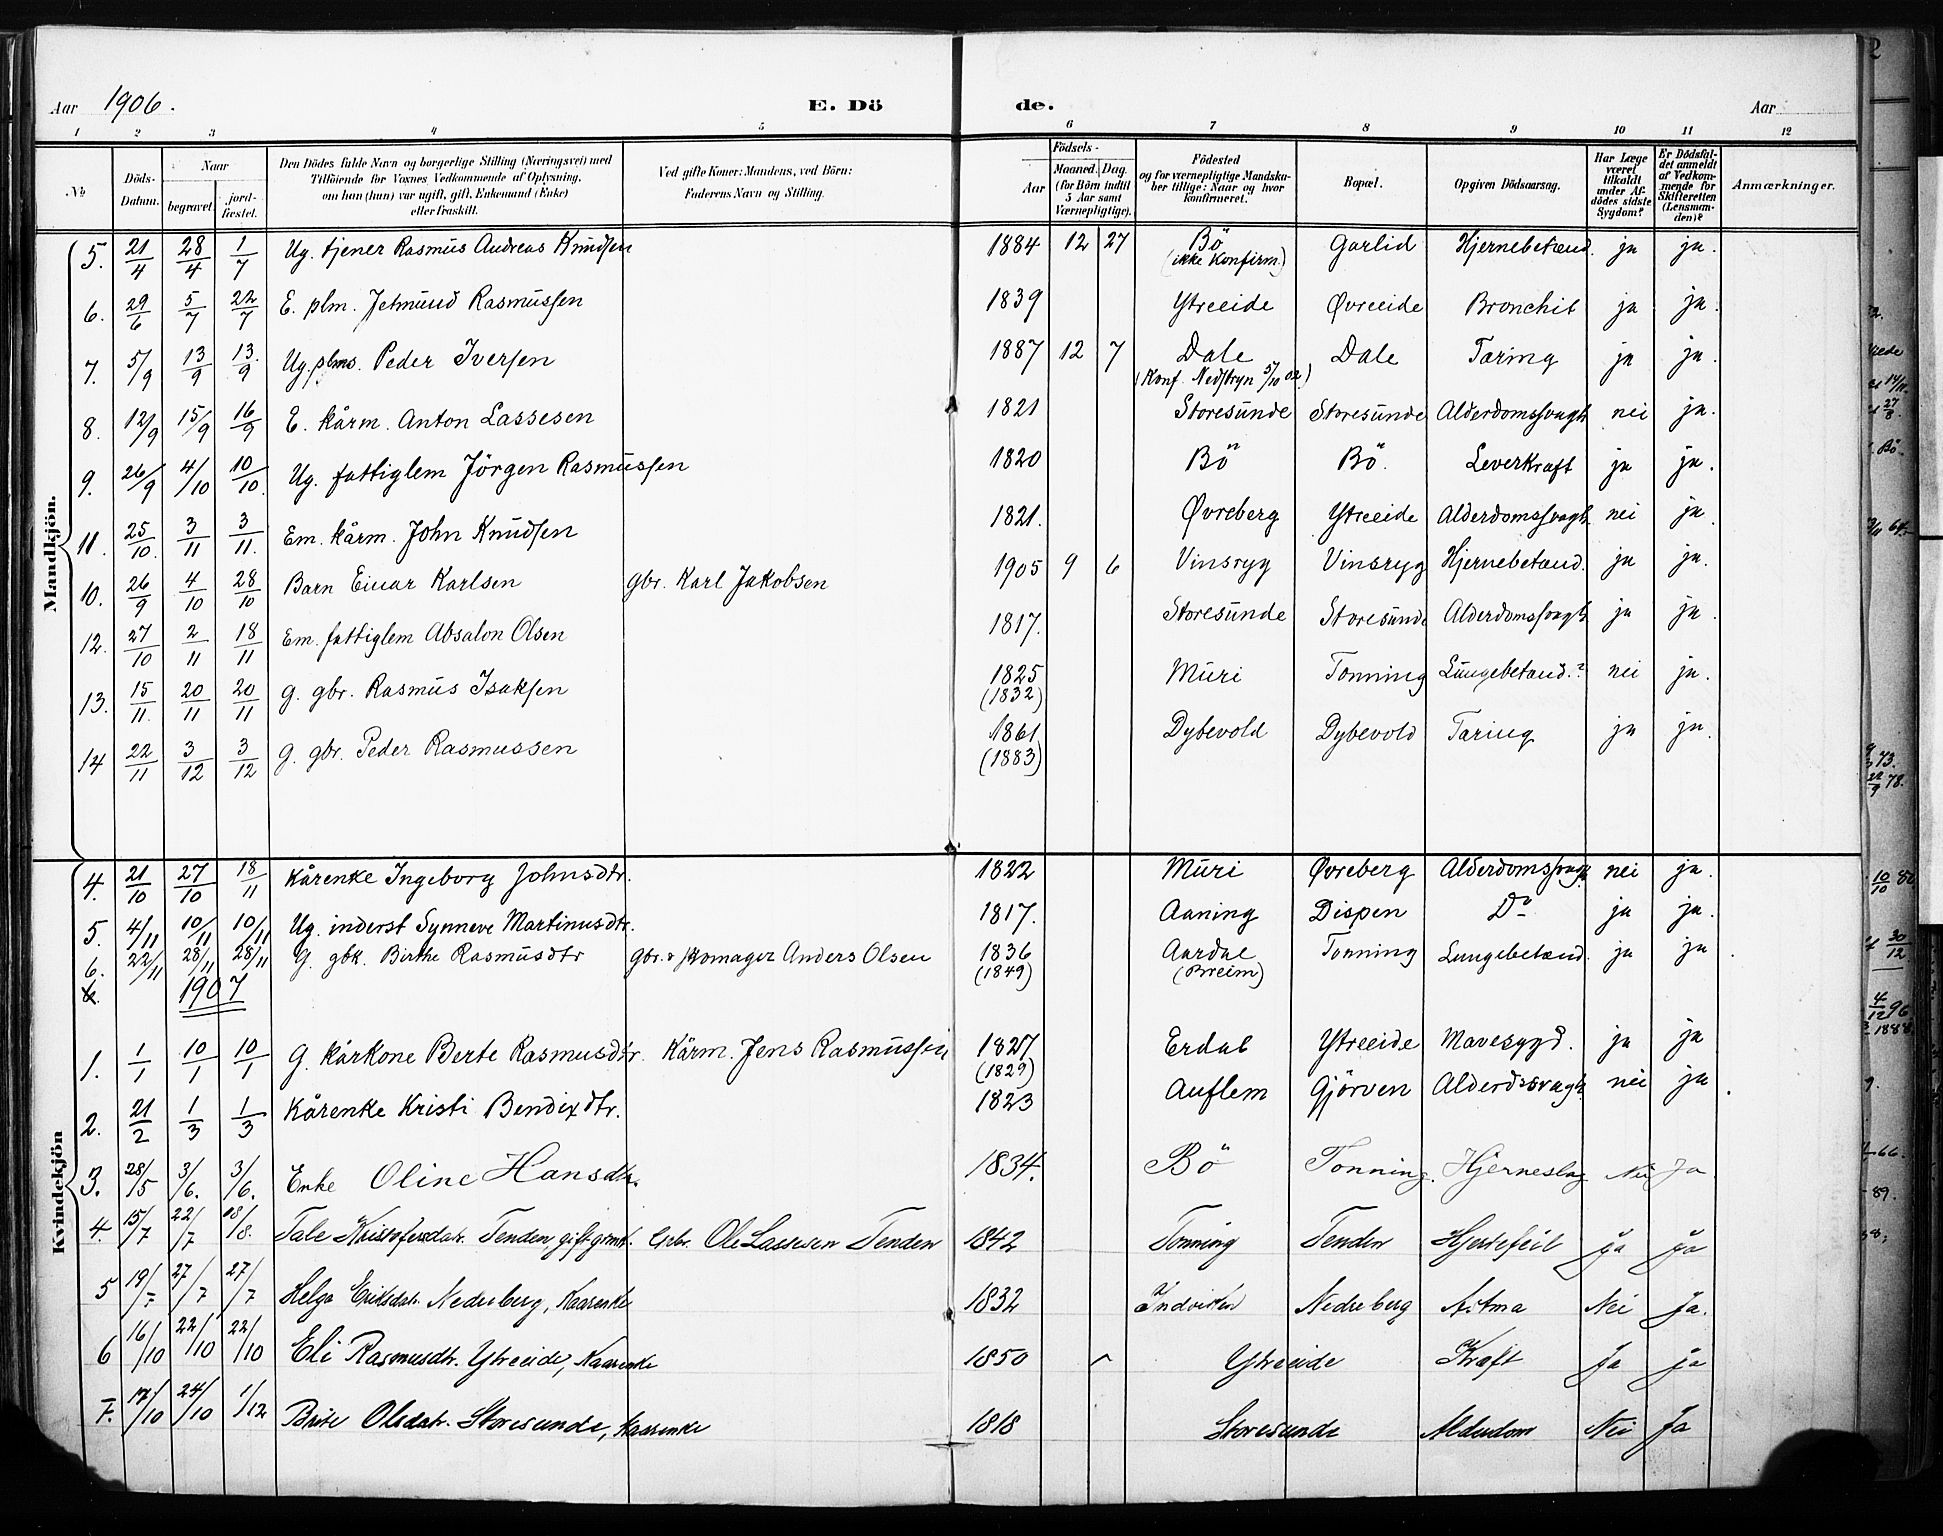 Aar 1906. E. Dö de. Aar
1 2 3 4 5 6 7 8 9 10 11 12
No Döds-Datum. Naar begravet. jordfæstet. Den Dödes fulde Navn og borgerlige Stilling (Næringsvei) med Tilföiende for Voxnes Vedkommende af Oplysning, om han (hun) var ugift, gift, Enkemand (Enke) eller fraskilt. Ved gifte Koner: Mandens, ved Börn: Faderens Navn og Stilling. Födsels- Aar Maaned. Dag. (for Börn indtil 5 Aar samt Værnepligtige). Födested og for værnepligtige Mandskaber tillige: Naar og hvor konfirmeret. Bopæl. Opgiven Dödsaarsag. Har Læge været tilkaldt under Afdödes sidste Sygdom? Er Dödsfaldet anmeldt af Vedkommende for Skifteretten (Lensmanden)? Anmærkninger.
Mandkjön.
5. 21/4 28/4 1/7 Ug. tjener Rasmus Andreas Knudsen 1884 12 27 Bö (ikke Konfirm.) Garlid Hjernebetænd. ja ja.
6. 29/6 5/7 22/7 E. plm. Jetmund Rasmussen 1839 Ytreeide Øvreeide Bronchit ja ja.
7. 5/9 13/9 13/9 Ug. plms. Peder Iversen 1887 12 7 Dale (Konf. Nedstryn 5/10 02.) Dale Tæring ja ja.
8. 12/9 15/9 16/9 E. kårm. Anton Lassesen 1821 Storesunde Storesunde Alderdomssvagh. nei ja.
9. 26/9 4/10 10/10. Ug. fattiglem Jörgen Rasmussen 1820 Bö Bö. Leverkraft ja ja.
11. 25/10. 3/11 3/11. Em. kårm. John Knudsen 1821. Øvreberg Ytreeide Alderdomssvagh. nei ja.
10. 26/9 4/10 28/10 Barn Einar Karlsen gbr. Karl Jakobsen 1905 9 6 Vinsryg Vinsryg Hjernebetænd. ja ja.
12. 27/10 2/11 18/11 Em. fattiglem Absalon Olsen 1817. Storesunde Storesunde Alderdomssvagh. ja ja.
13. 15/11. 20/11 20/11 g. gbr. Rasmus Isaksen 1825 (1832) Muri Tonning Lungebetænd.? nei ja.
14 22/11 3/12 3/12 g. gbr. Peder Rasmussen 1861 (1883) Dybevold Dybevold Tæring ja ja.
Kvindekjön
4. 21/10 27/10 18/11 Kårenke Ingeborg Johnsdtr. 1822 Muri Øvreberg Alderdomssvagh. nei ja.
5. 4/11 10/11 10/11 Ug. inderst Synneve Martinusdtr. 1817. Aaning Dispen Do ja ja.
6. 22/11 28/11 28/11 G. gbk. Birthe Rasmusdtr gbr. & skomager Anders Olsen 1836 (1849) Aardal (Breim) Tonning Lungebetænd. ja ja.
6.
1907
1. 1/1 10/1 10/1 G. kårkone Berte Rasmusdtr. Kårm. Jens Rasmussen 1827 (1829) Erdal Ytreeide Mavesygd. ja ja
2. 21/2 1/3 1/3 Kårenke Kristi Bendixdtr. 1823 Auflem Gjörven Alderdssvagh. nei ja.
3. 28/5 3/6. 3/6. Enke Oline Hansdtr. 1834. Bö Tonning. Hjerneslag Nei Ja
4. 15/7 22/7 18/8. Tale Kristofersdatr. Tenden, gift grmd. Gbr. Ole Lassesen Tenden 1842 Tonning Tenden Hjertefeil Ja Ja
5 19/7 27/7 27/7 Helga Eriksdatr. Nedreberg, Kaarenke 1832 Indviken Nedreberg Astma Nei Ja.
6 16/10 22/10 22/10 Eli Rasmusdtr. Ytreeide, Kaarenke 1850 Ytreeide Kræft Ja Ja
7. 17/10 24/10 1/12 Brite Olsdatr. Storesunde, Kaarenke 1818 Storesunde Alderdom Nei Ja